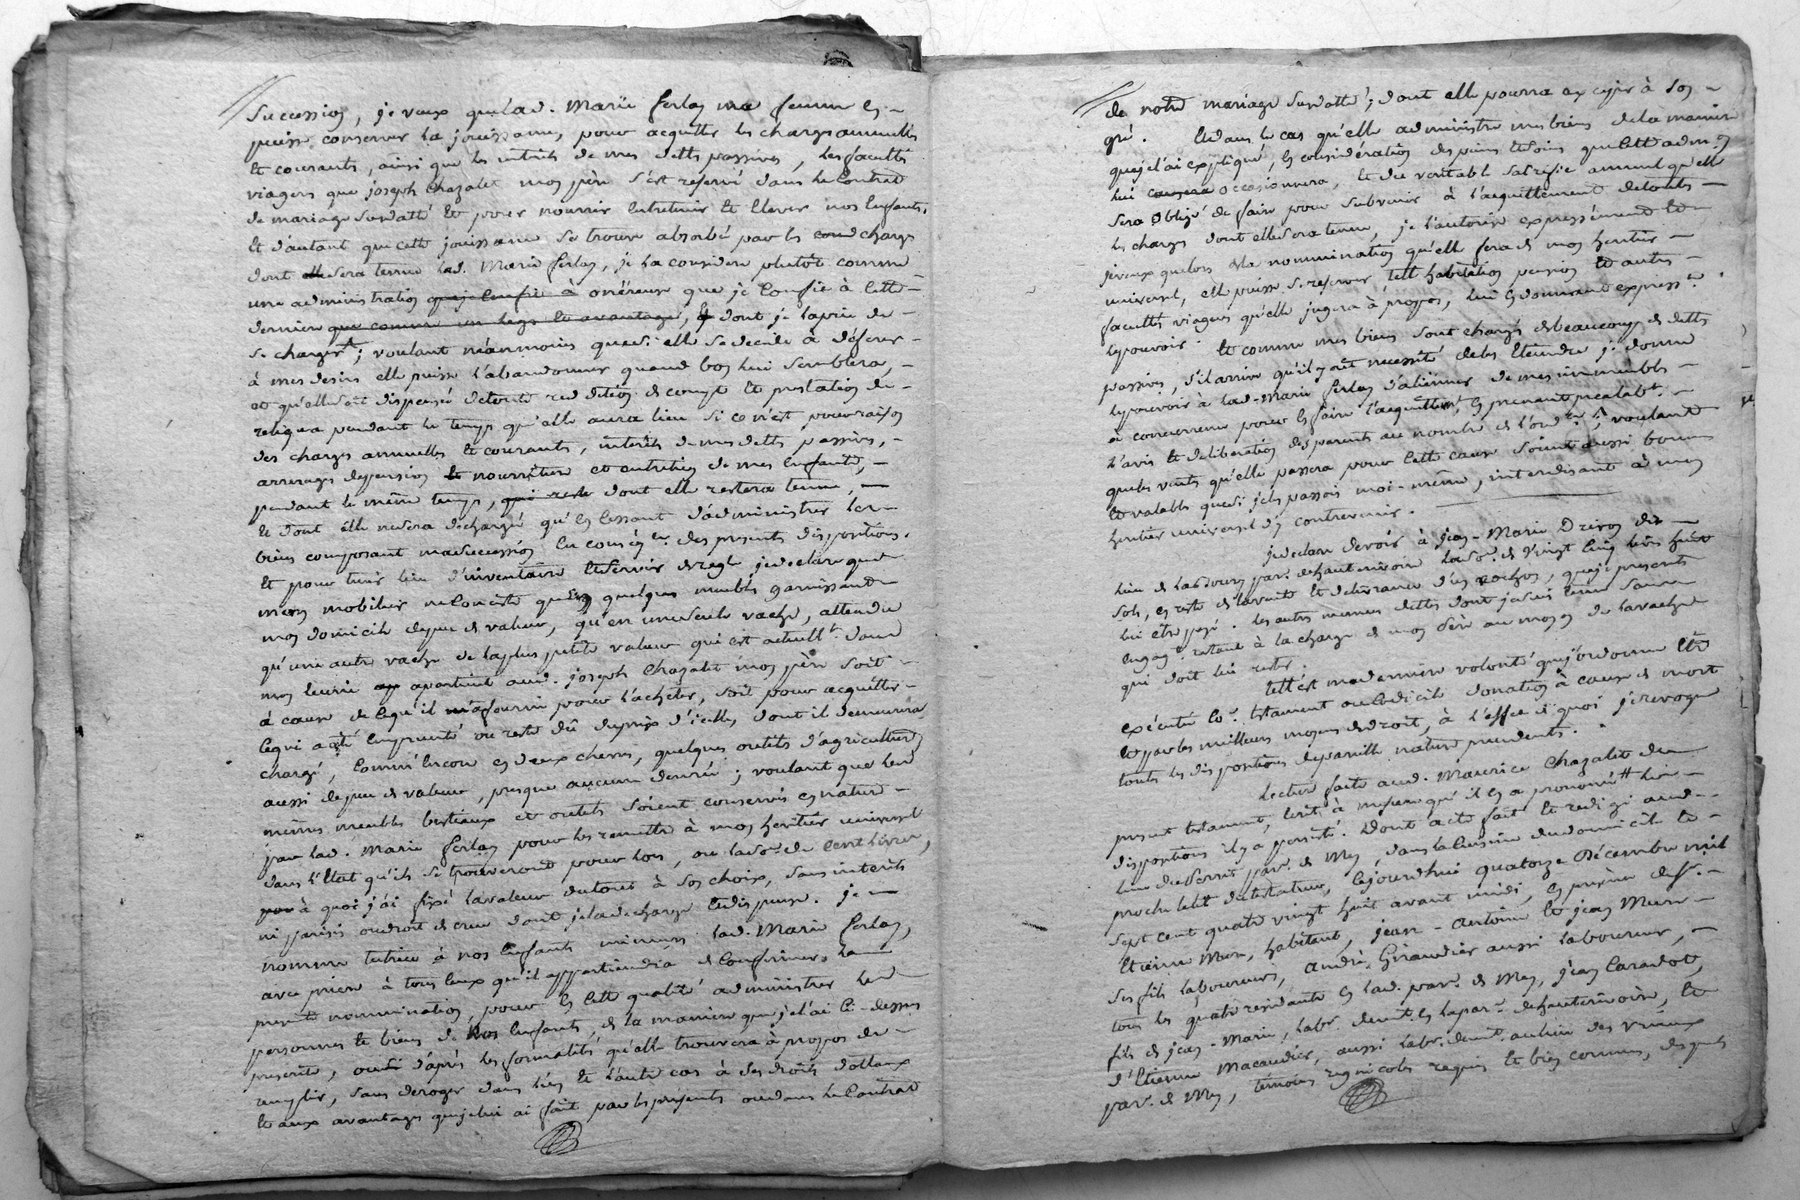 Succession, je veux que lad. Marie ferlay ma femme en
puisse conserver la jouissance, pour acquitter les charges annuelles
et courants, ainsi que les interets de mes dettes passives, les facultés
viageres que joseph Chazalet mon père s'est reservé dans le Contrat
de mariage susdatté et pour nourrir entretenir et elever nos enfants.
Et d'autant que cette jouissance se trouve absorbée par les charges
dont elle sera tenue lad. Marie ferlay, je la considere plutôt comme
une administration onéreuse que je confie à cette
derniere que comme un legs et avantage, dont je la prie de
se charger; voulant néanmoins que si elle se decide à déferer
à mes desirs elle puisse l'abandonner quand bon lui semblera,
et qu'elle soit dispensée de toute reddition de compte et prestation de
reliqua pendant le temps qu'elle aura lieu si ce n'est pour raison
des charges annuelles et courants, interets de mes dettes passives,
arrerages de pension et nourriture et entretien de mes enfants,
pendant le même temps, dont elle restera tenue,
et dont elle ne sera dechargée qu'en cessant d'administrer les
biens composant ma succession en conséq.ce des presents dispositions.
Et pour tenir lieu d'inventaire et servir de regle je declare que
mon mobilier ne consiste qu'en quelques meubles garnissant
mon domicile de peu de valeur, qu'en une seule vache, attendu
qu'une autre vache de la plus petite valeur qui est actuell.t dans
mon ecurie apartient aud. joseph Chazalet mon père soit
à cause de ce qu'il m'a fourni pour l'acheter, soit pour acquitter
ce qui a été emprunté ou reste dû du prix d'icelle, dont il demeurera
chargé, comm'encore en deux chevres, quelques outils d'agriculture
aussi de peu de valeur, presque aucune denrée; voulant que les
mêmes meubles bestiaux et outils soient conservés en nature
par lad. Marie ferlay pour les remettre à mon heritier universel
dans l'état qu'ils se trouveront pour lors, ou la so.e de cent livres,
à quoi j'ai fixé la valeur du tout à son choix, sans interets
ni parisis ou droit de crue dont je la decharge et dispense. je
nomme tutrice à nos enfants mineurs lad. Marie ferlay,
avec priere à tous ceux qu'il appartiendra de confirmer la
presente nomination, pour en cette qualité administrer les
personnes et biens de nos enfants, de la maniere que je l'ai ci-dessus
prescrite, ou d'après les formalités qu'elle trouvera à propos de
remplir, sans deroger dans l'un et l'autre cas à ses droits dotaux
et aux avantages que je lui ai fait par les presents ou dans le Contrat
de notre mariage susdatté; dont elle pourra exiger à son
gré. Et dans le cas qu'elle administre mes biens de la maniere
que je l'ai expliqué, en considération des peines et soins que cette adm.on
lui occasionnera, et du veritable sacrifice annuel qu'elle
sera obligée de faire pour subvenir à l'acquittement de toutes
les charges dont elle sera tenue, je l'autorise expressément et
je veux que lors de la nomination qu'elle fera de mon heritier
universel, elle puisse se reserver telle habitation pension et autres
facultés viageres qu'elle jugera à propos, lui en donnant express.t
le pouvoir. Et comme mes biens sont chargés de beaucoup de dettes
passives, s'il arrive qu'il y ait necessité de les éteindre je donne
le pouvoir à lad. Marie ferlay d'aliéner de mes immeubles
à concurrence pour en faire l'acquittem.t, en prenant prealab.t
l'avis et deliberation des parents au nombre de l'ord.ce; voulant
que les ventes qu'elle passera pour cette cause soient aussi bonnes
et valables que si je les passois moi-même, interdisant à mon
heritier universel d'y contrevenir.
je declare devoir à jean-Marie Drevon du
lieu de par. de hauterivoire la so.e de vingt cinq livres huit
sols, en reste de la vente et delivrance d'un cochon, que je presents
lui être payé. les autres menues dettes dont je suis tenu sauve
engag.t restant à la charge de mon père au moyen de la vache
qui doit lui rester.
Tell'est ma derniere volonté que j'ordonne être
exécutée co.e testament ou codicile donation à cause de mort
et par les meilleurs moyens de droit, à l'effet de quoi je revoque
toutes les dispositions de pareille nature precedents.
Lecture faite aud. Maurice Chazalet du
present testament, ecrit à mesure qu'il en a prononcé les
dispositions il y a persisté. Dont acte fait et redigé aud.
lieu du Perret par. de Meys, dans la cuisine du domicile le
proche letit du testateur, cejourd'hui quatorze Décembre mil
sept cent quatre vingt huit avant midi, en presence de s.r
Etienne Mure, habitant, jean-antoine et jean Mure
ses fils laboureurs, andré Giraudier aussi laboureur,
tous les quatre residants en lad. par. de Meys, jean Caradot,
fils de jean-Marie, labr. demt. en la par. de hauterivoire, et
d'Etienne Macaudier, aussi labr. demt. au lieu des vrieux
par. de Meys, témoins regnicoles requis et bien connus, desquels